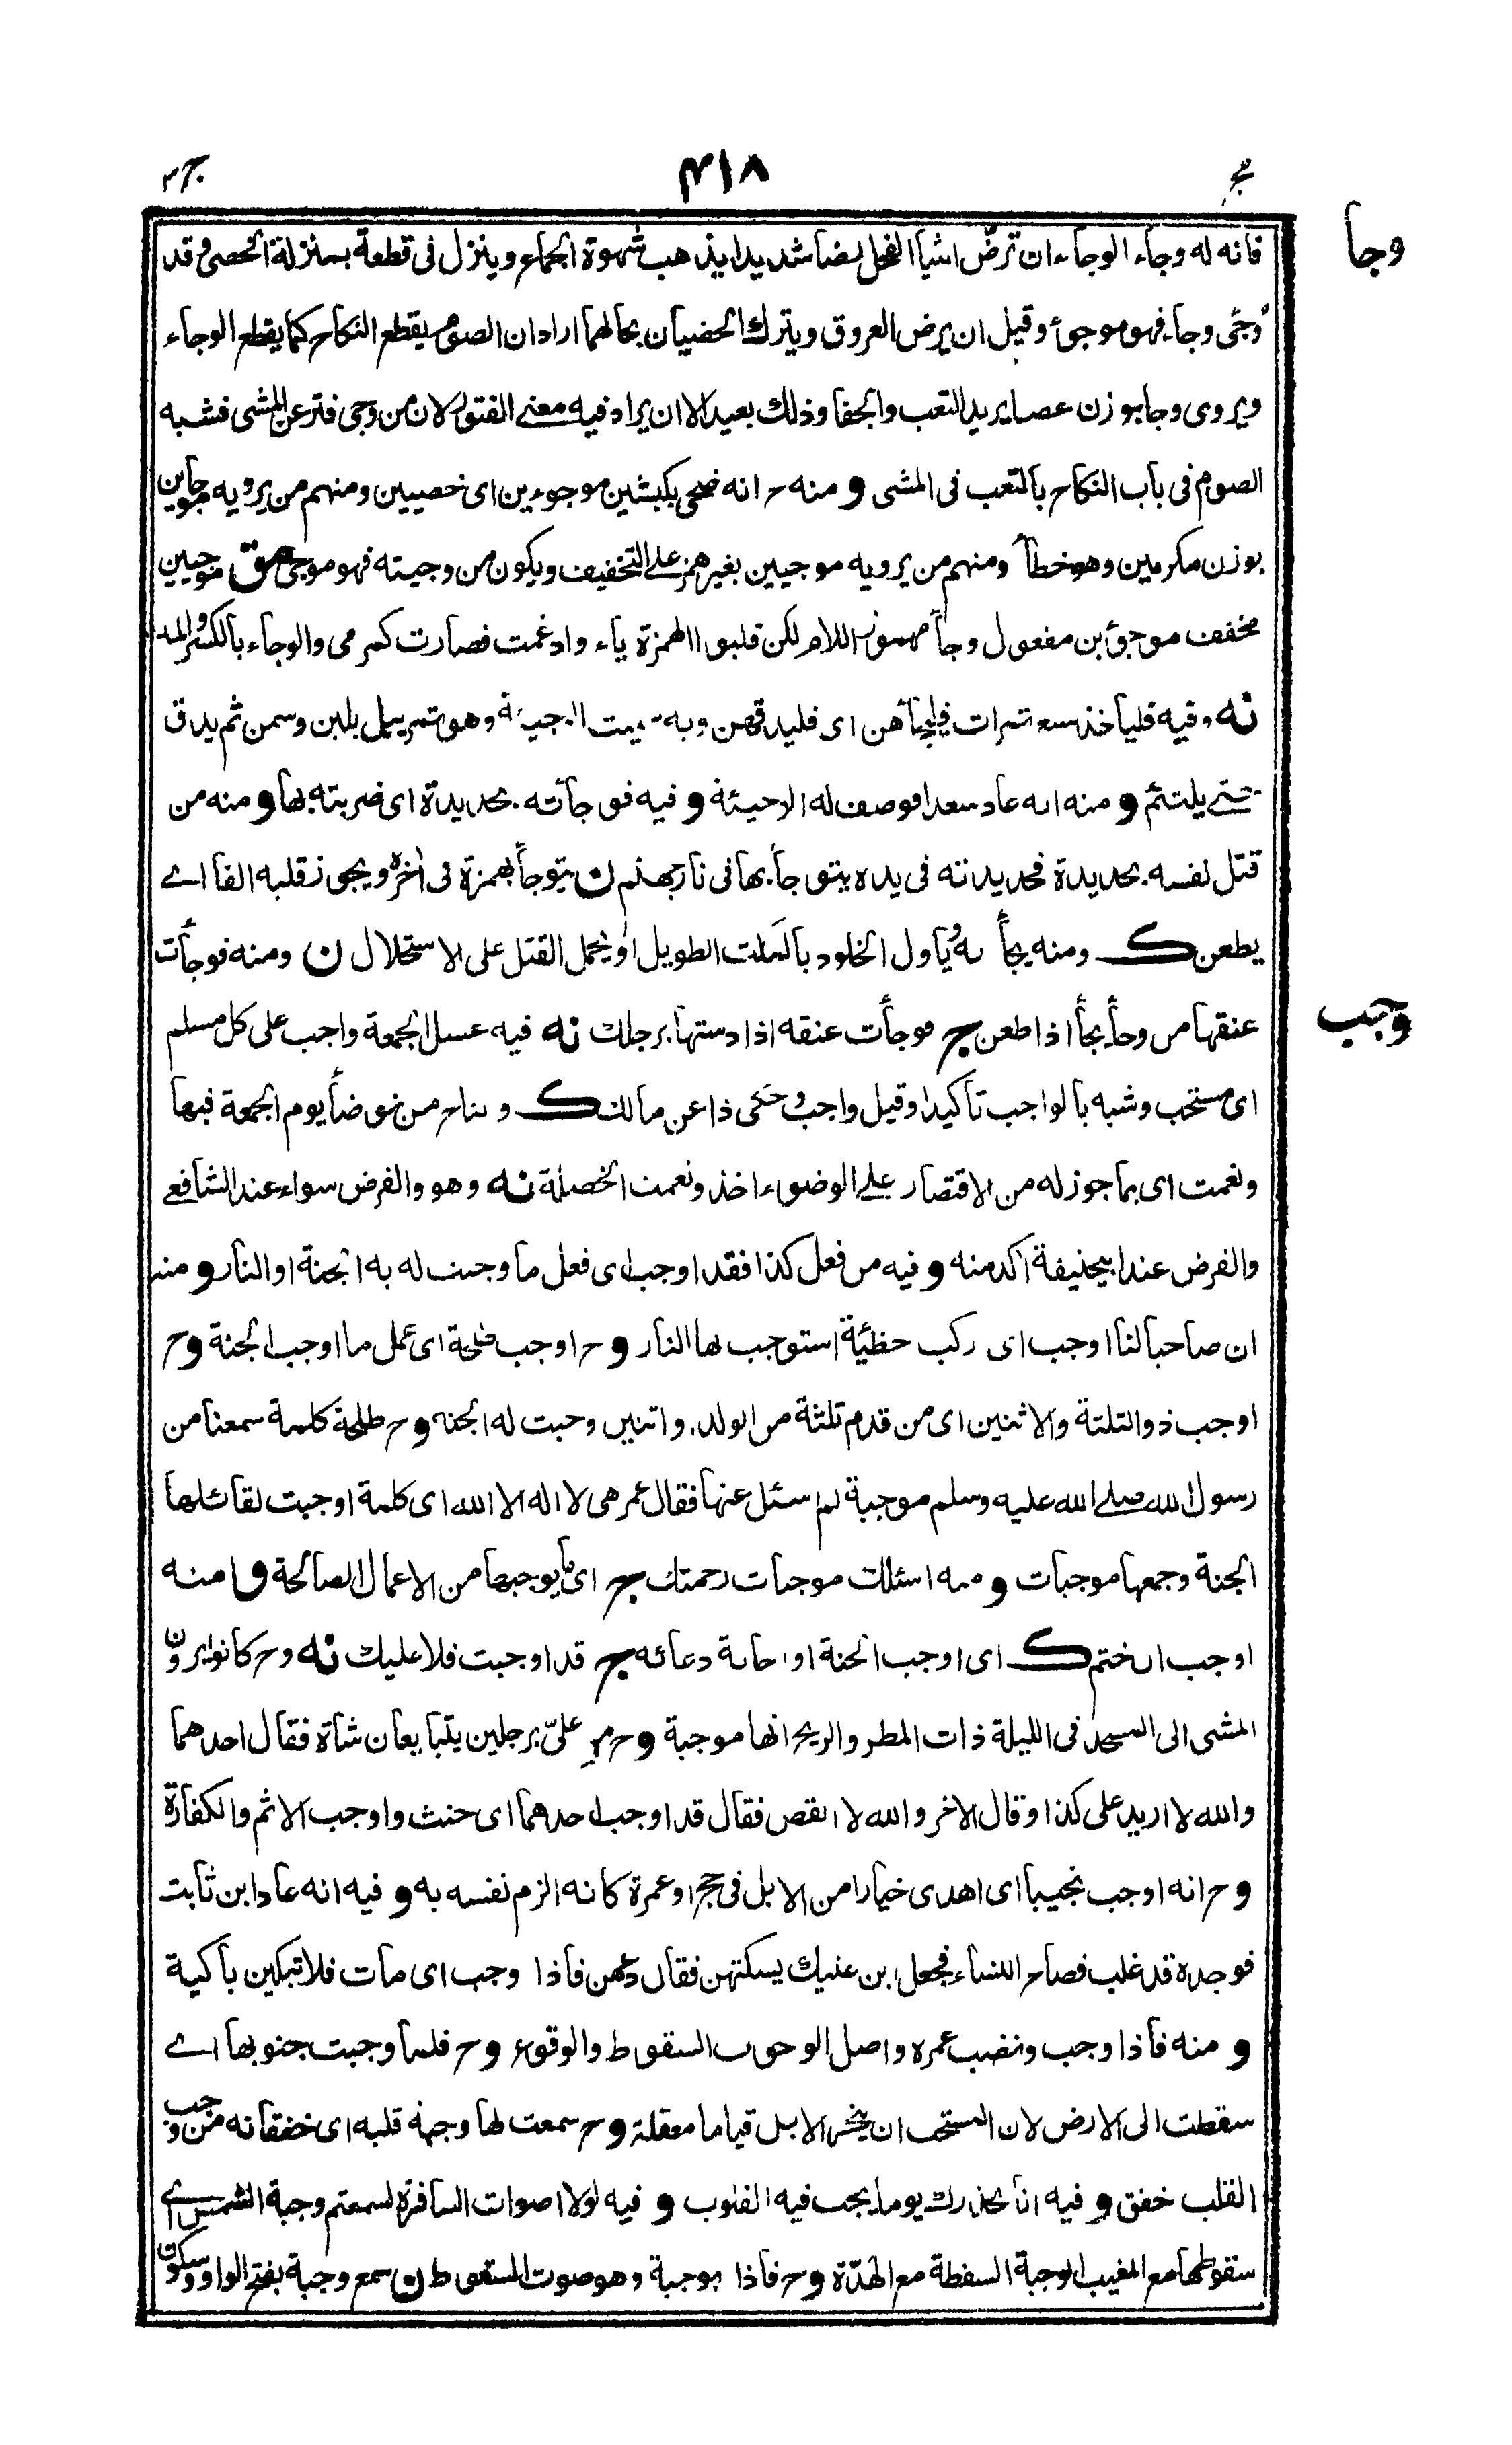 ج٣
٤١٨
وجا
فانه له وجاء الوجاء ان ترضّ انثيا الفحل رضا شديدا يذهب شهوة الجماع وينزل فى قطعة بمنزلة الخصى وقد
وُجئ وجأ فهو موجوء وقيل ان يرض العروق ويترك الخصيان بحالهما اراد ان الصوم يقطع النكاح كما يقطع الوجاء
ويروى وجا بوزن عصا يريد التعب والحفا وذلك بعيد الا ان يراد فيه معنى الفتور لان من وجى فتر عن المشى فشبه
الصوم فى باب النكاح بالتعب فى المشى و منه ح انه ضحى بكبشين موجوءين اى خصيين ومنهم من يرويه موجأين
بوزن مكرمين وهو خطأ ومنهم من يرويه موجيين بغير همز على التخفيف ويكون من وجيته فهو موجى مق موجيين
مخفف موجوء بن مفعول وجأ مهموز اللام لكن قلبوا الهمزة ياء وادغمت فصارت كمرمى والوجاء بالكسر والمد
نه وفيه فليأخذ سبع تمرات فليجأهن اى فليدقهن وبه سميت الوجيئة وهو تمر يبل بلبن وسمن ثم يدق
حتى يلتئم و منه انه عاد سعدا فوصف له الوجيئة و فيه فوجأته بحديدة اى ضربته بها و منه من
قتل نفسه بحديدة فحديدته فى يده يتوجأ بها فى نار جهنم ن يتوجأ بهمزة فى اخره ويجوز قلبه الفا اے
يطعن ك ومنه يجأ به ويأول الخلود بالمكث الطويل او يحمل القتل على الاستحلال ن ومنه فوجأت
عنقها من وجأ يجأ اذا طعن ج فوجأت عنقه اذا دستها برجلك نه فيه غسل الجمعة واجب على كل مسلم
وجب
اى مستحب وشبه بالواجب تأكيدا وقيل واجب وحكى ذا عن مالك ك و يناح من توضأ يوم الجمعة فبها
ونعمت اى بما جوز له من الاقتصار على الوضوء اخذ ونعمت الخصلة نه وهو والفرض سواء عند الشافعى
والفرض عند ابيحنيفة اكد منه و فيه من فعل كذا فقد اوجب اى فعل ما وجبت له به الجنة او النار و منه
ان صاحبا لنا اوجب اى ركب خطيئة استوجب بها النار و ح اوجب طلحة اى عمل ما اوجب الجنة و ح
اوجب ذو الثلثة والاثنين اى من قدم ثلثة من الولد و اثنين وجبت له الجنه و ح طلحة كلمة سمعنا من
رسول الله صلى الله عليه وسلم موجبة لم اسئل عنها فقال عمر هى لا اله الا الله اى كلمة اوجبت لقائلها
الجنة وجمعها موجبات و منه اسئلك موجبات رحمتك ج اى ما يوجبها من الاعمال الصالحة و امنه
اوجب ان ختم ك اى اوجب الجنة او اجابة دعائه ج قد اوجبت فلا عليك نه و ح كانوا يرون
المشى الى المسجد فى الليلة ذات المطر والريح انها موجبة و ح مر علىّ برجلين يتبايعان شاة فقال احدهما
والله لا ازيد على كذا وقال الاخر والله لا انقص فقال قد اوجب احدهما اى حنث واوجب الاثم والكفارة
و ح انه اوجب نجيبا اى اهدى خيارا من الابل فى حج او عمرة كانه الزم نفسه به و فيه انه عاد ابن ثابت
فوجده قد غلب فصاح النساء فجعل ابن عتيك يسكتهن فقال دعهن فاذا وجب اى مات فلا تبكين باكية
و منه فاذا وجب ونضب عمره واصل الوجوب السقوط والوقوع و ح فلما وجبت جنوبها اے
سقطت الى الارض لان المستحب ان ينحر الابل قياما معقلة و ح سمعت لها وجبة قلبه اى خفقانه من وجب
القلب خفق و فيه انا نحذرك يوما يجب فيه القلوب و فيه لولا اصوات السافرة لسمعتم وجبة الشمس اے
سقوطها مع المغيب الوجبة السقطة مع الهدّة و ح فاذا بوجبة وهو صوت السقوط ن سمع وجبة بفتح الواو وسكون